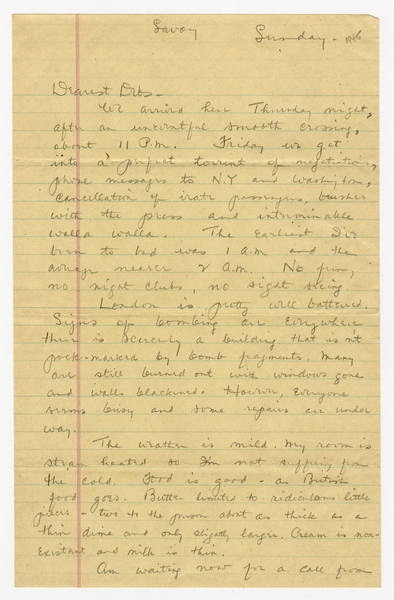 Savoy Sunday - 1946
Dearest Debs -
We arrived here Thursday night,
after an uneventful smooth crossing,
about 11 P.M. Friday we get
into a perfect torrent of negotiations,
phone messages to N.Y and Washington,
cancellation of irate passengers, brushes
with the press and interminable
walla walla. The Earliest I've
been to bed was 1 a.m and the
average nearer 2 a.m. No fun,
no night clubs, no sight seeing
London is pretty well battered.
Signs of bombing are Everywhere
there is scarcely a building that isn't
pock-marked by bomb fragments. Many
are still burned out with windows gone
and walls blackened. However, Everyone
seems busy and some repairs are under
way.
The weather is mild. My room is
steam heated so I'm not suffering from
the cold. Food is good - as British
food goes. Butter limited to ridiculous little
pieces - two to the person about as thick as a
thin dime and only slightly larger. Cream is non-
existant and milk is thin.
Am waiting now for a call from